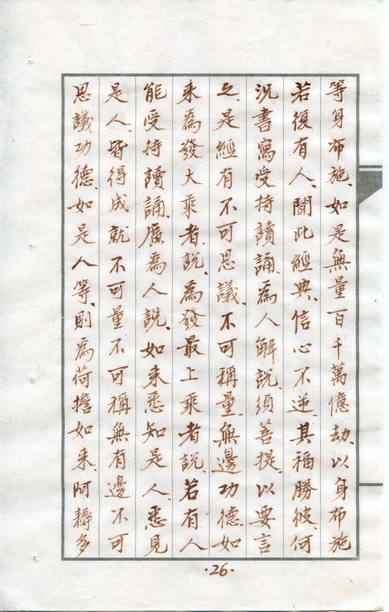 等身布施、如是無量百千萬億劫、以身布施
若復有人、聞此經典、信心不逆、其福勝彼、何
況書寫受持讀誦、為人解說、須菩提、以要言
之、是經有不可思議、不可稱量、無邊功德、如
來為發大乘者說、為發最上乘者說、若有人
能受持讀誦、廣為人說、如來悉知是人、悉見
是人、皆得成就不可量不可稱無有邊不可
思議功德、如是人等、則為荷擔如來、阿耨多
·26·